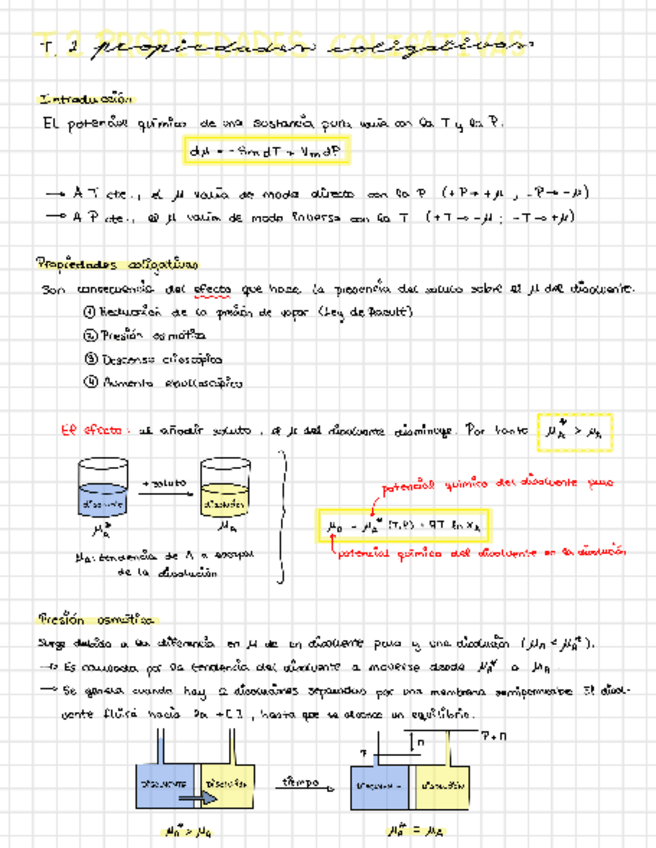 T. 2 propiedades coligativas
Introducción
El potencial químico de una sustancia pura varía con la T y la P.
dμ = -Sm dT + Vm dP
→ A T cte., el μ varía de modo directo con la P (+P → +μ, -P → -μ)
→ A P cte., el μ varía de modo inverso con la T (+T → -μ; -T → +μ)
Propiedades coligativas
Son consecuencia del efecto que hace la presencia del soluto sobre el μ del disolvente.
① Reducción de la presión de vapor (Ley de Raoult)
② Presión osmótica
③ Descenso crioscópico
④ Aumento ebulloscópico
El efecto: al añadir soluto, el μ del disolvente disminuye. Por tanto μA* > μA
+ soluto
disolvente
disolución
μA*
μA
μA: tendencia de A a escapar
de la disolución
potencial químico del disolvente puro
μA = μA* (T,P) + RT ln xA
potencial químico del disolvente en la disolución
Presión osmótica
Surge debido a la diferencia en μ de un disolvente puro y una disolución (μA < μA*).
→ Es causada por la tendencia del disolvente a moverse desde μA* a μA
→ Se genera cuando hay 2 disoluciones separadas por una membrana semipermeable. El disol-
vente fluirá hacia la +[ ], hasta que se alcance un equilibrio.
DISOLVENTE
DISOLUCIÓN
tiempo
P
Π
P + Π
DISOLVENTE
DISOLUCIÓN
μA* > μA
μA* = μA